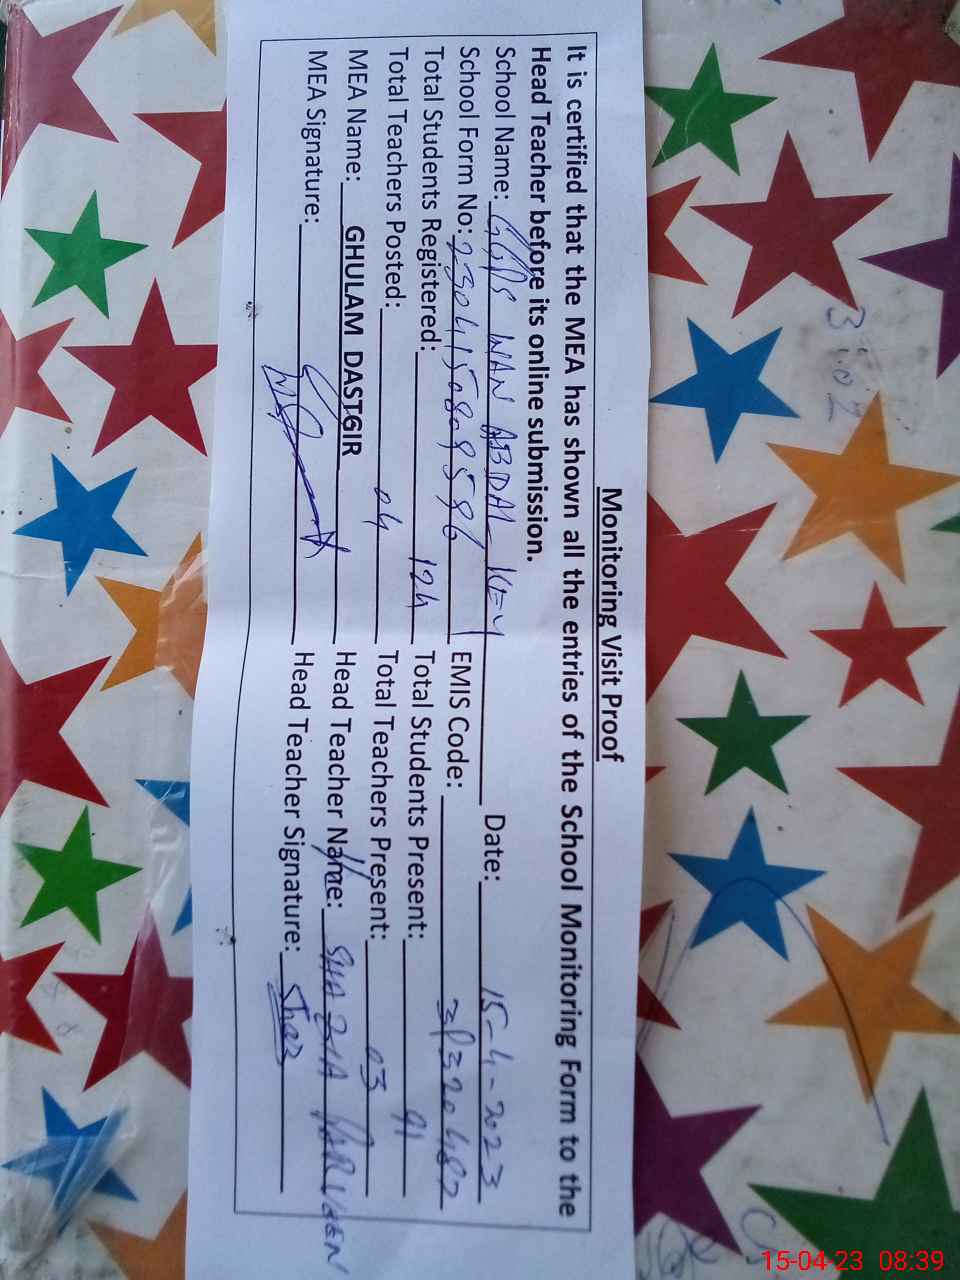 Monitoring Visit Proof
It is certified that the MEA has shown all the entries of the School Monitoring Form to the
Head Teacher before its online submission.
School Name: GGPS WAN ABDAL KEY Date: 15-4-2023
School Form No: 2304150809596 EMIS Code: 37320487
Total Students Registered: 124 Total Students Present: 91
Total Teachers Posted: 04 Total Teachers Present: 03
MEA Name: GHULAM DASTGIR Head Teacher Name: SHAZIA PARVEEN
MEA Signature: Head Teacher Signature: Shaz
15-04-23 08:39